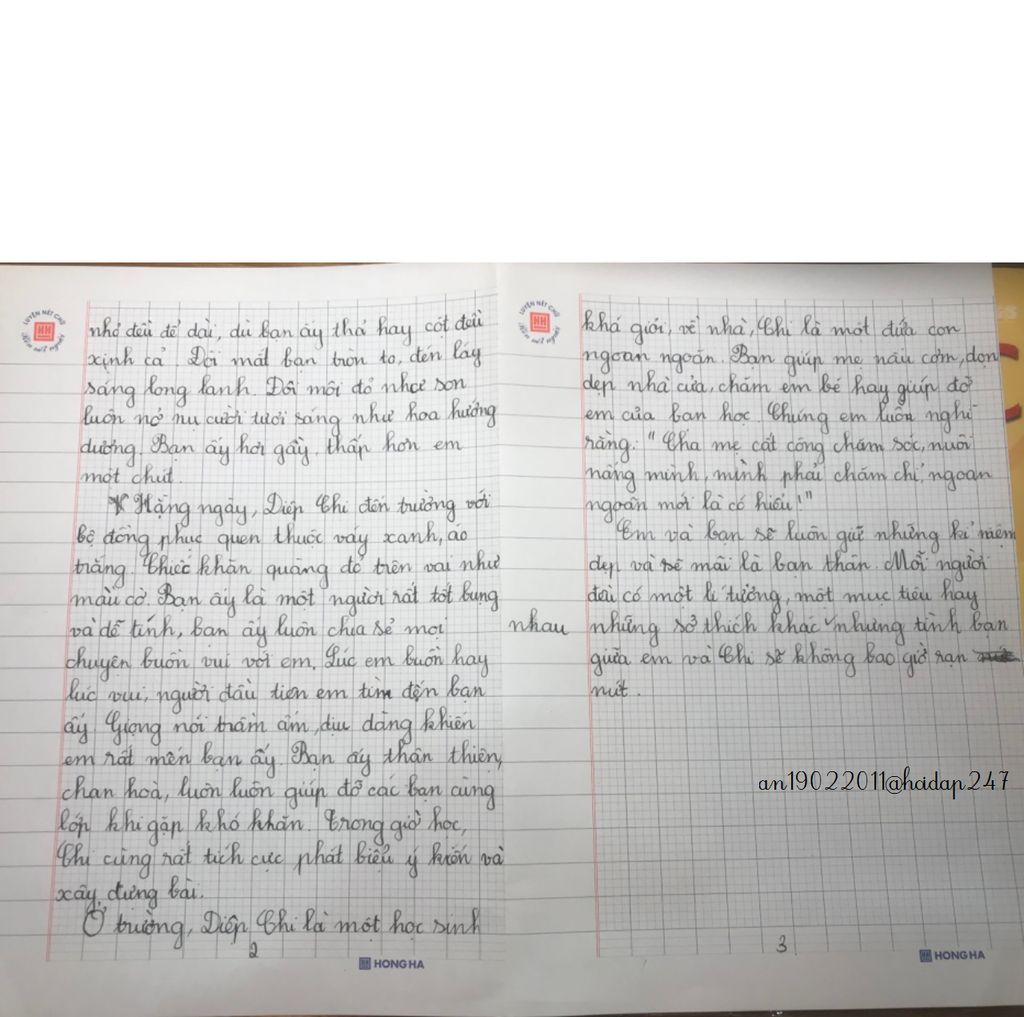 LUYỆN NÉT CHỮ
HH
Rèn nết người
nhỏ đều để dài, dù bạn ấy thả hay cột đều
xinh cả. Đôi mắt bạn tròn to, đen láy
sáng long lanh. Đôi môi đỏ như son
luôn nở nụ cười tươi sáng như hoa hướng
dương. Bạn ấy hơi gầy, thấp hơn em
một chút.
Hằng ngày, Diệp Chi đến trường với
bộ đồng phục quen thuộc váy xanh, áo
trắng. Chiếc khăn quàng đỏ trên vai như
màu cờ. Bạn ấy là một người rất tốt bụng
và dễ tính, bạn ấy luôn chia sẻ mọi
chuyện buồn vui với em. Lúc em buồn hay
lúc vui, người đầu tiên em tìm đến bạn
ấy. Giọng nói trầm ấm, dịu dàng khiến
em rất mến bạn ấy. Bạn ấy thân thiện,
chan hoà, luôn luôn giúp đỡ các bạn cùng
lớp khi gặp khó khăn. Trong giờ học,
Chi cũng rất tích cực phát biểu ý kiến và
xây dựng bài.
Ở trường, Diệp Chi là một học sinh
2
HONG HA
LUYỆN NÉT CHỮ
HH
Rèn nết người
khá giỏi, về nhà, Chi là một đứa con
ngoan ngoãn. Bạn giúp mẹ nấu cơm, dọn
dẹp nhà cửa, chăm em bé hay giúp đỡ
em của bạn học. Chúng em luôn nghĩ
rằng: "Cha mẹ cất công chăm sóc, nuôi
nấng mình, mình phải chăm chỉ, ngoan
ngoãn mới là có hiếu!"
Em và bạn sẽ luôn giữ những kỉ niệm
đẹp và sẽ mãi là bạn thân. Mỗi người
đều có một lí tưởng, một mục tiêu hay
những sở thích khác nhau nhưng tình bạn
giữa em và Chi sẽ không bao giờ rạn
nứt.
an19022011@hoidap247
3
HONG HA